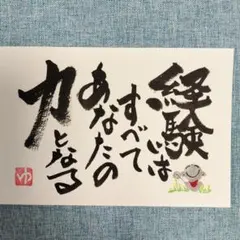 経験は
すべて
あなたの
力となる
ゆ